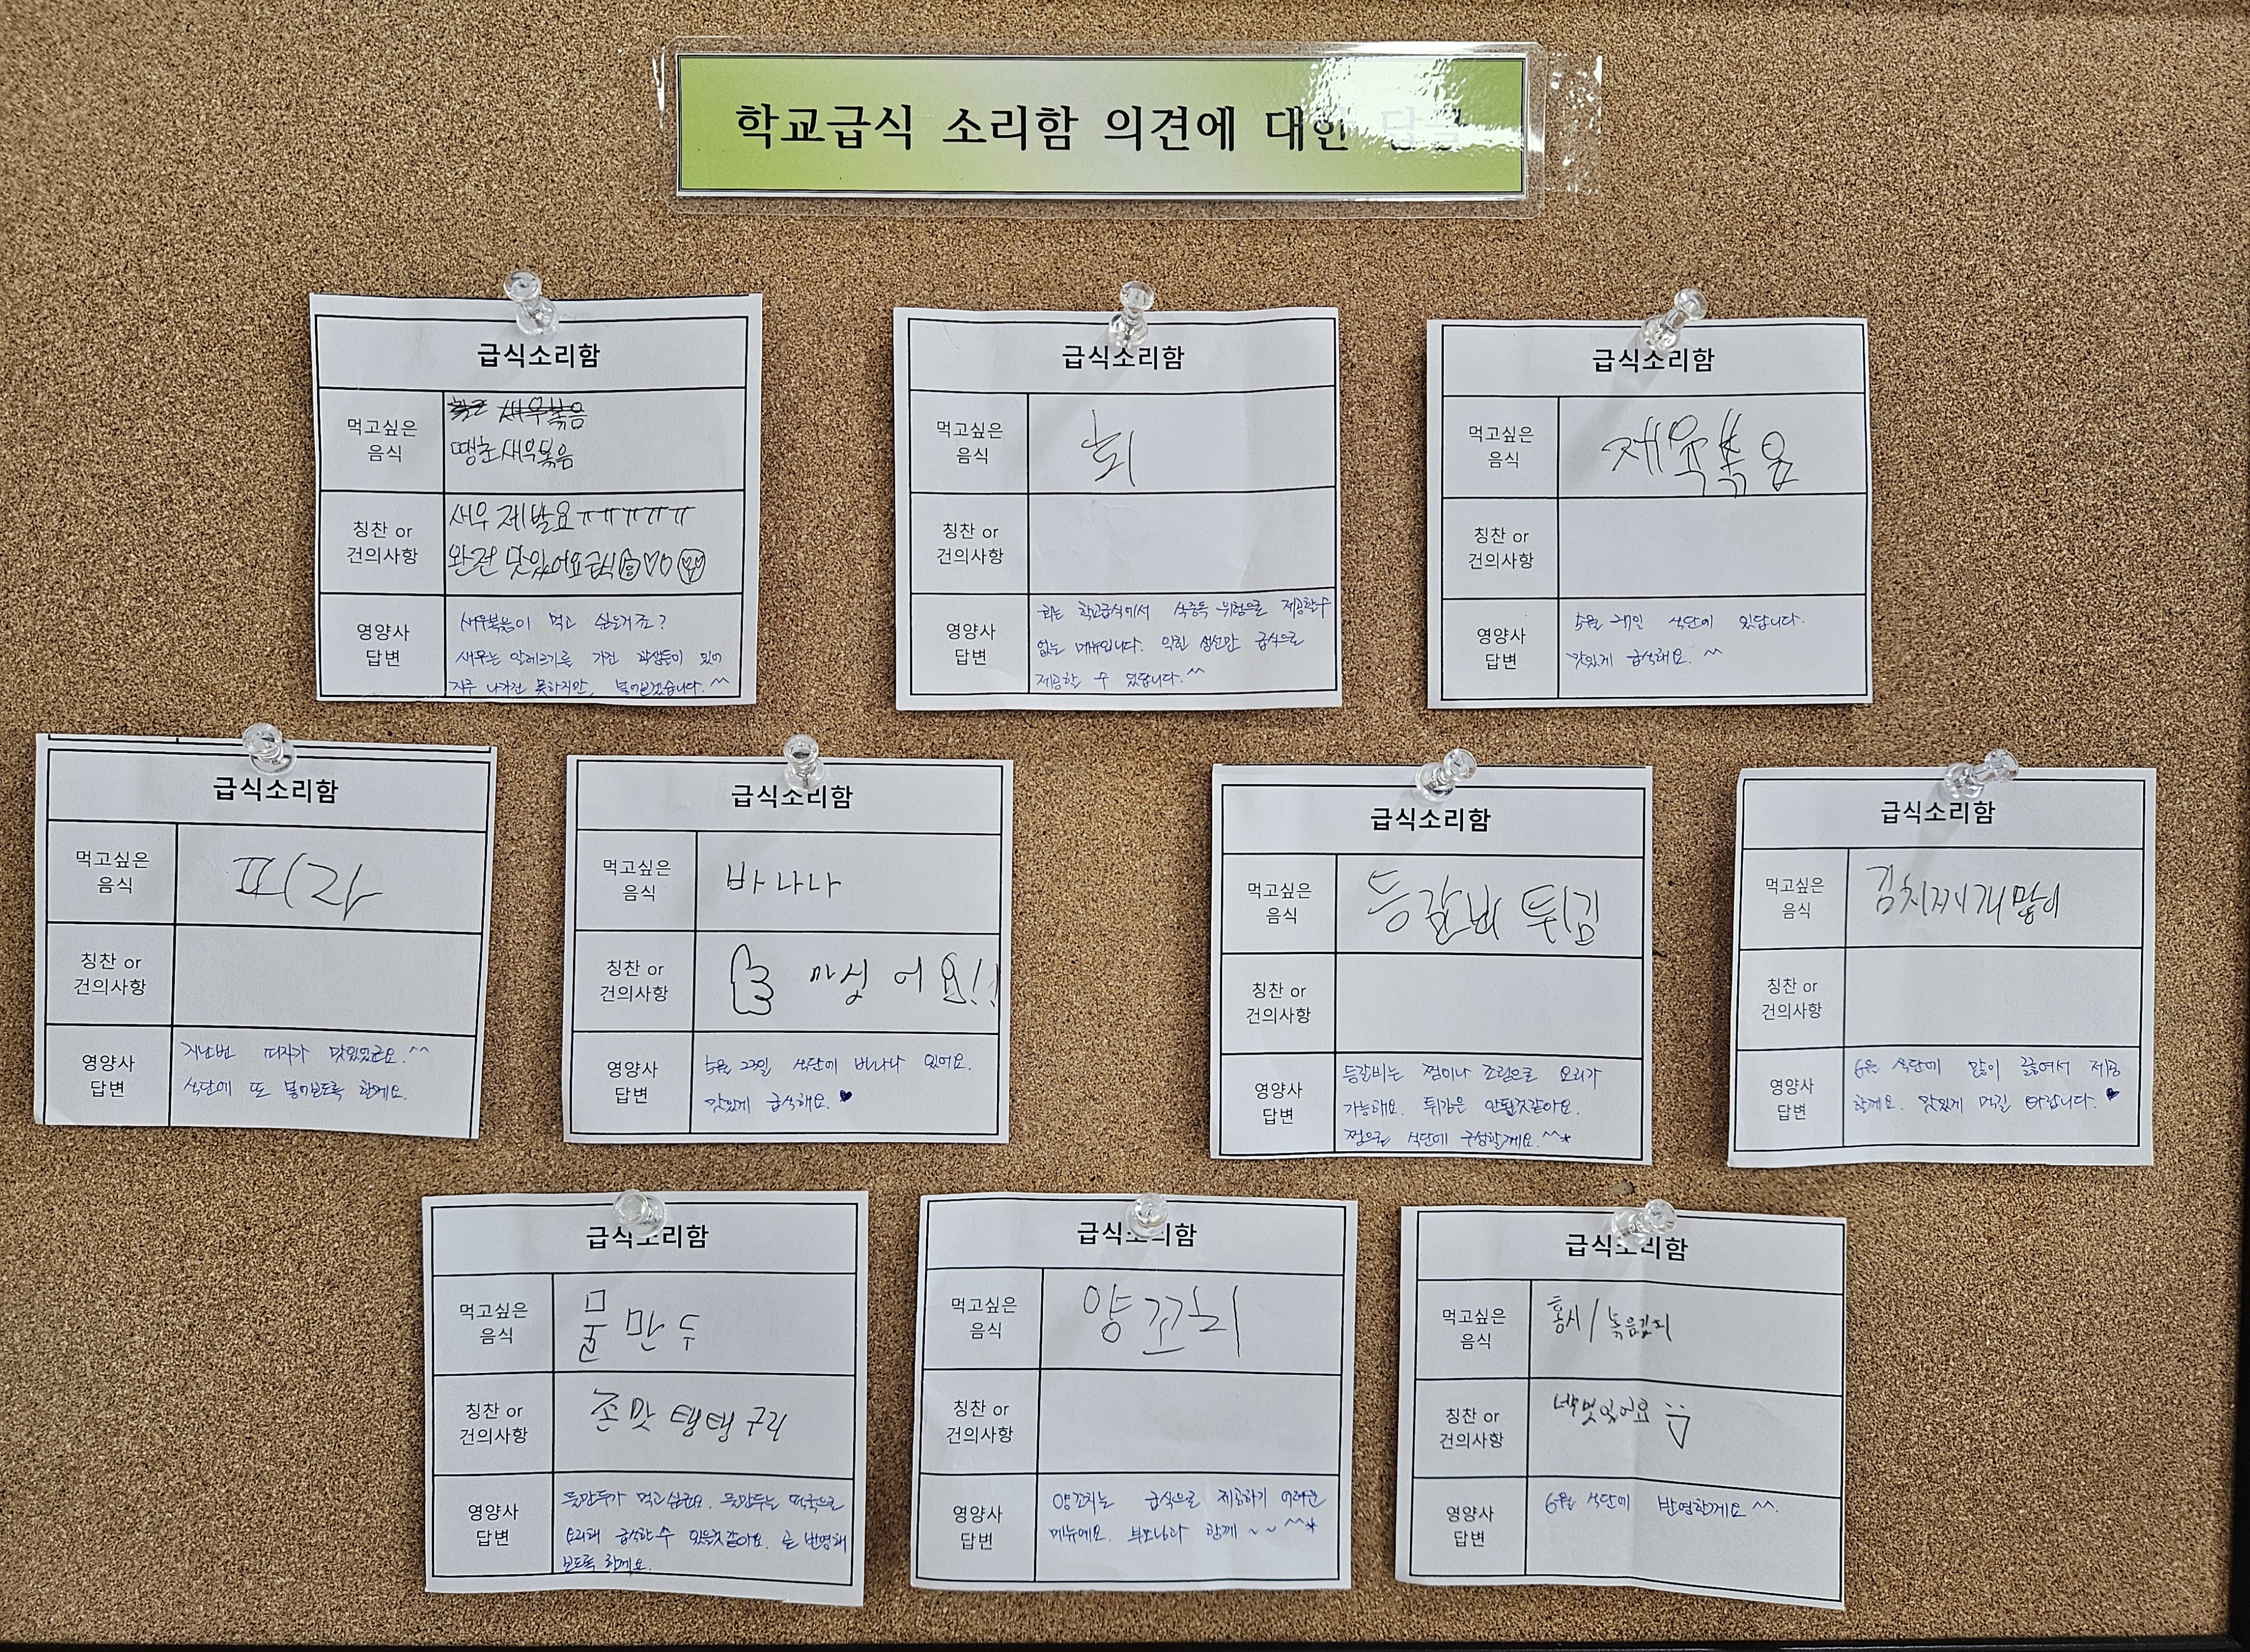 학교급식 소리함 의견에 대한 답글
급식소리함
먹고싶은
음식
새우볶음
땡초새우볶음
칭찬 or
건의사항
새우 제발요ㅠㅠㅠㅠㅠ
완전 맛있어요급식
영양사
답변
새우볶음이 먹고 싶은거죠?
새우는 알레르기를 가진 학생들이 있어
자주 나가진 못하지만, 넣어보겠습니다.^^
급식소리함
먹고싶은
음식
회
칭찬 or
건의사항
영양사
답변
회는 학교급식에서 식중독 위험으로 제공할수
없는 메뉴입니다. 익힌 생선만 급식으로
제공할 수 있답니다.^^
급식소리함
먹고싶은
음식
제육볶음
칭찬 or
건의사항
영양사
답변
5월 식단에 있답니다.
맛있게 급식해요.^^
급식소리함
먹고싶은
음식
피자
칭찬 or
건의사항
영양사
답변
지난번 피자가 맛있었군요.^^
식단에 또 넣어보도록 할게요.
급식소리함
먹고싶은
음식
바나나
칭찬 or
건의사항
마싯어요!!
영양사
답변
5월 23일 식단에 바나나 있어요.
맛있게 급식해요.♥
급식소리함
먹고싶은
음식
등갈비 튀김
칭찬 or
건의사항
영양사
답변
등갈비는 찜이나 조림으로 요리가
가능해요. 튀김은 안될것같아요.
찜으로 식단에 구성할게요.^^*
급식소리함
먹고싶은
음식
김치찌개많이
칭찬 or
건의사항
영양사
답변
6월 식단에 많이 끓여서 제공
할게요. 맛있게 먹길 바랍니다.♥
급식소리함
먹고싶은
음식
물만두
칭찬 or
건의사항
존맛탱탱구리
영양사
답변
물만두가 먹고싶군요. 물만두는 떡국으로
요리해 급식할수 있을것같아요. 곧 반영해
보도록 할게요.
급식소리함
먹고싶은
음식
양꼬치
칭찬 or
건의사항
영양사
답변
양꼬치는 급식으로 제공하기 어려운
메뉴예요. 부모님과 함께~~^^*
급식소리함
먹고싶은
음식
홍시/볶음김치
칭찬 or
건의사항
맛있어요
영양사
답변
6월 식단에 반영할게요^^.